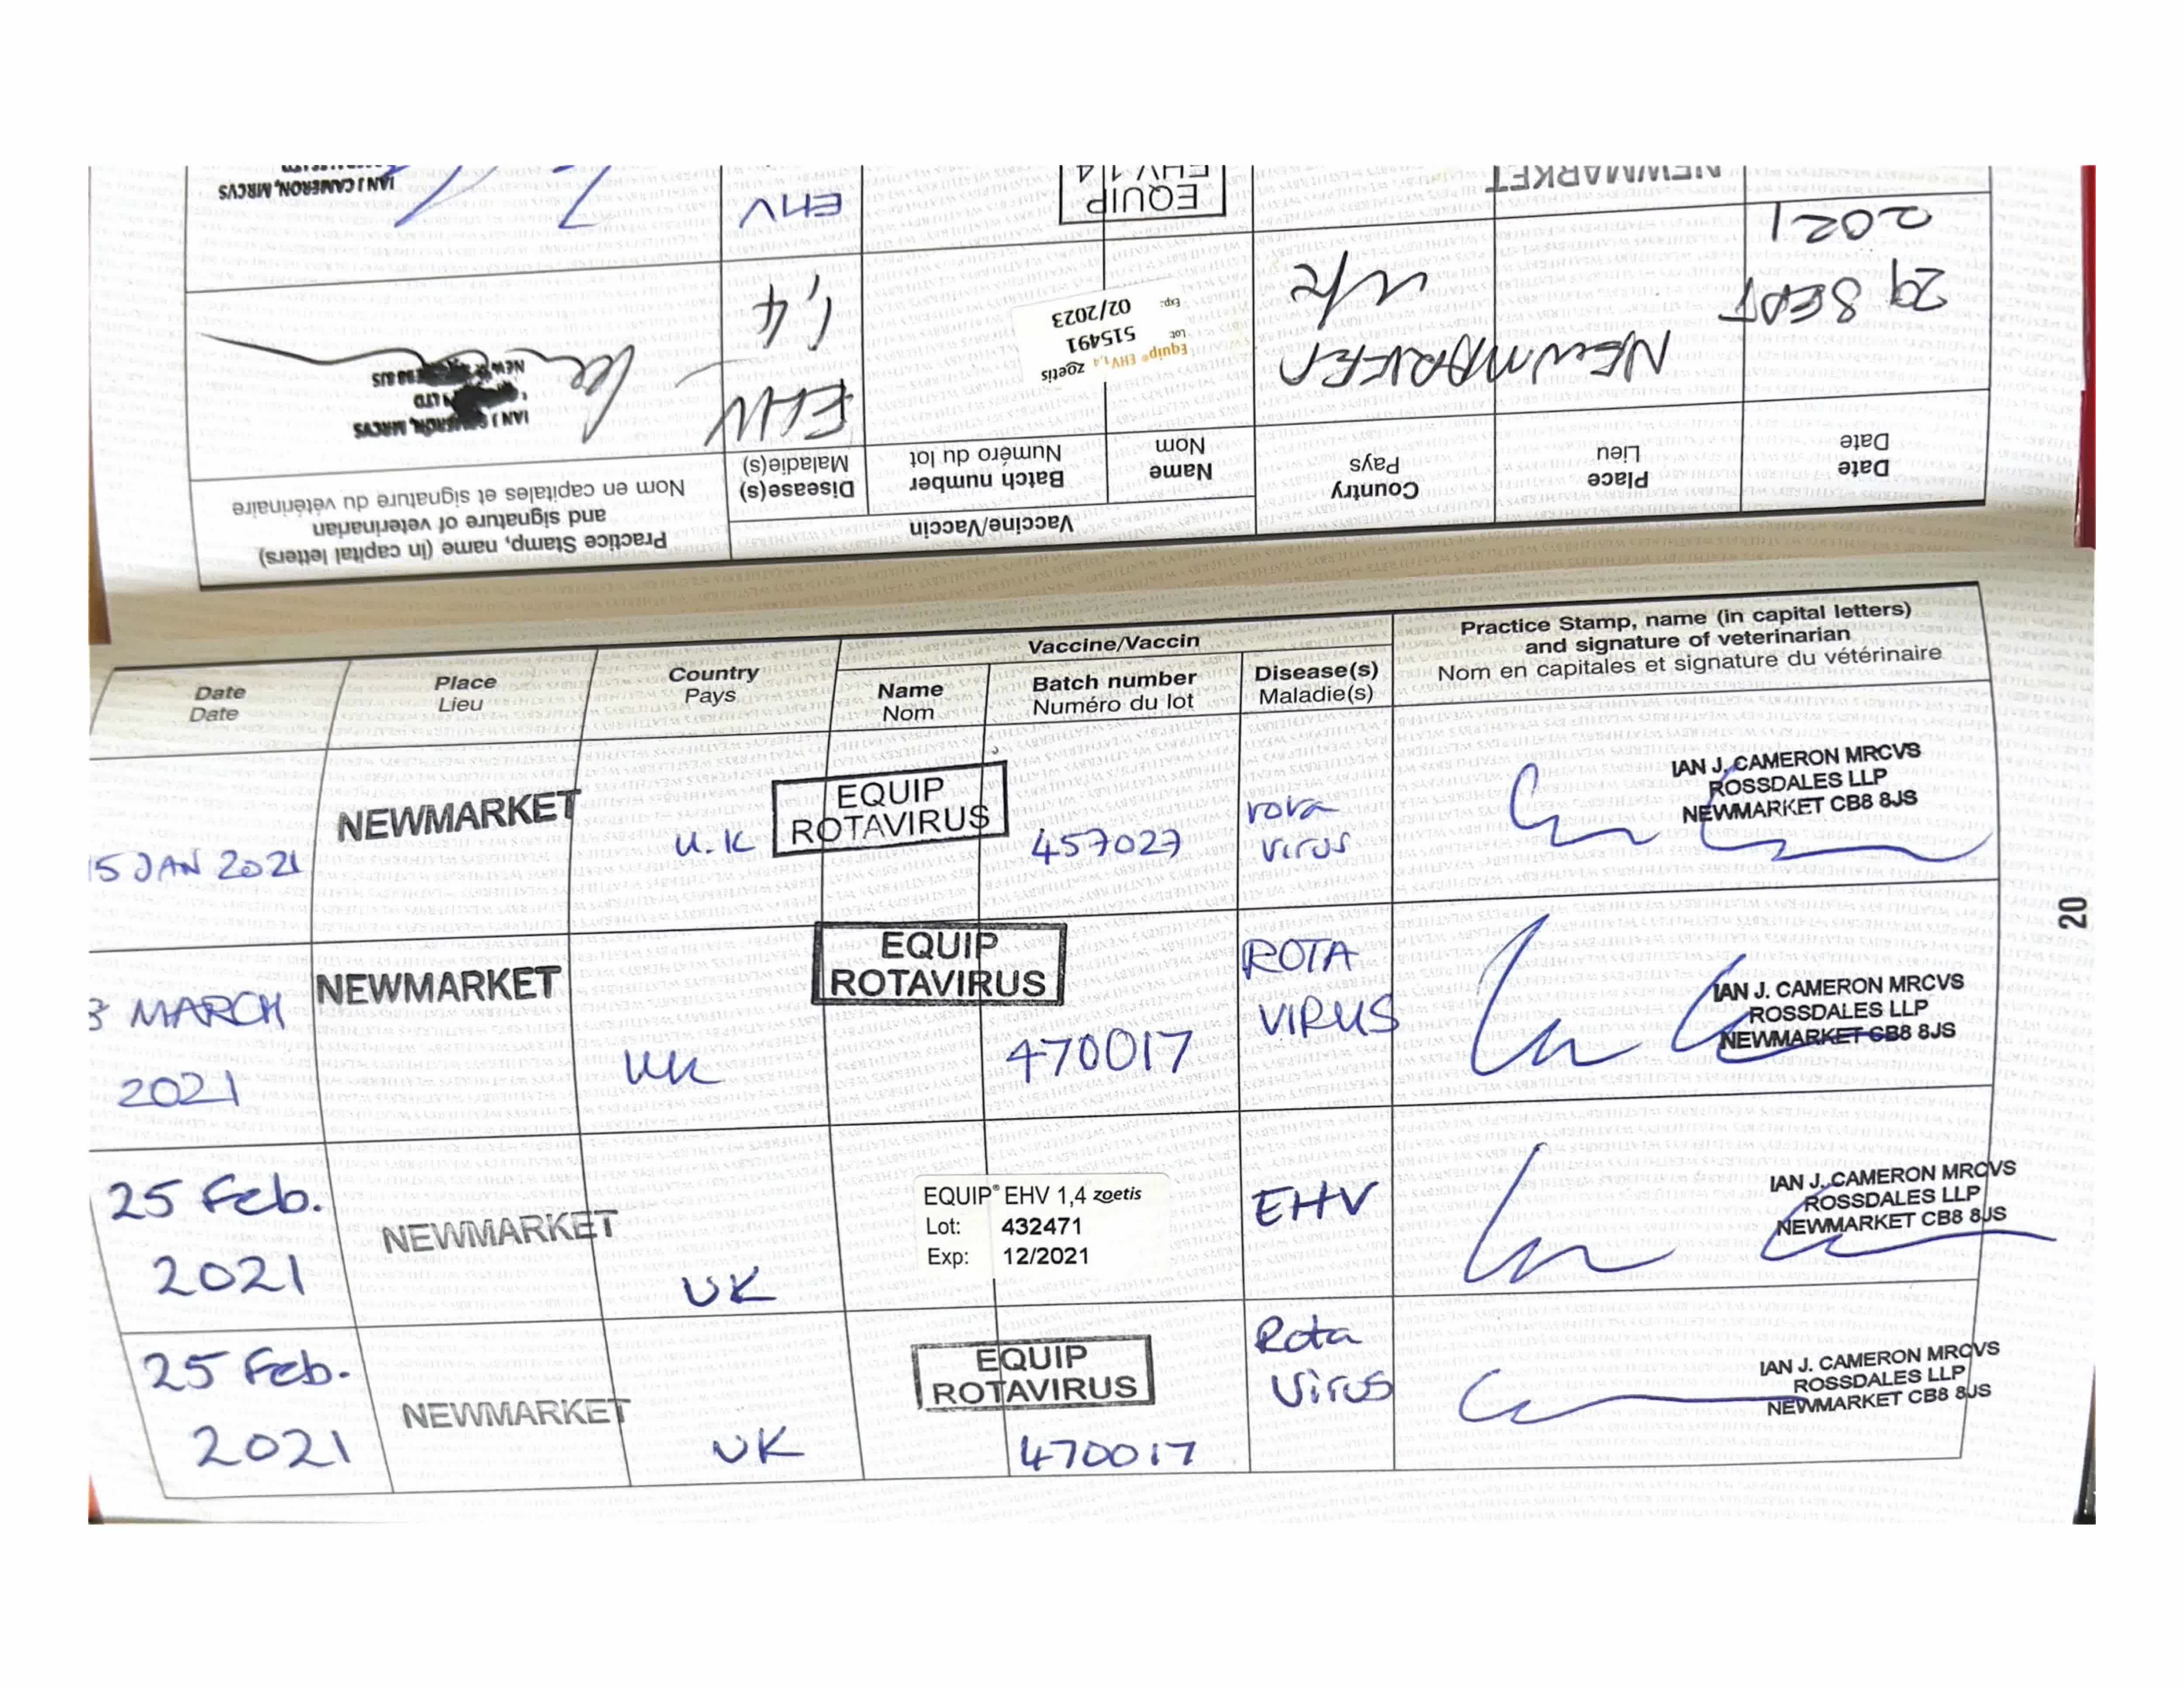 Practice Stamp, name (in capital letters)
and signature of veterinarian
Nom en capitales et signature du vétérinaire
Vaccine/Vaccin
Disease(s)
Maladie(s)
Batch number
Numéro du lot
Name
Nom
Country
Pays
Place
Lieu
Date
Date
29 SEPT
2021
NEWMARKET
U/K
Equip® EHV 1,4 zoetis
Lot 515491
Exp: 02/2023
EHV
1,4
IAN J CAMERON, MRCVS
LTD
NEWMARKET
EQUIP
EHV 1 4
EHV
IAN J CAMERON, MRCVS
NEWMARKET
Date
Date
Place
Lieu
Country
Pays
Vaccine/Vaccin
Name
Nom
Batch number
Numéro du lot
Disease(s)
Maladie(s)
Practice Stamp, name (in capital letters)
and signature of veterinarian
Nom en capitales et signature du vétérinaire
15 JAN 2021
NEWMARKET
U.K
EQUIP
ROTAVIRUS
457027
rota
virus
IAN J. CAMERON MRCVS
ROSSDALES LLP
NEWMARKET CB8 8JS
3 MARCH
2021
NEWMARKET
UK
EQUIP
ROTAVIRUS
470017
ROTA
VIRUS
IAN J. CAMERON MRCVS
ROSSDALES LLP
NEWMARKET CB8 8JS
25 Feb.
2021
NEWMARKET
UK
EQUIP® EHV 1,4 zoetis
Lot: 432471
Exp: 12/2021
EHV
IAN J. CAMERON MRCVS
ROSSDALES LLP
NEWMARKET CB8 8JS
25 Feb.
2021
NEWMARKET
UK
EQUIP
ROTAVIRUS
470017
Rota
Virus
IAN J. CAMERON MRCVS
ROSSDALES LLP
NEWMARKET CB8 8JS
20